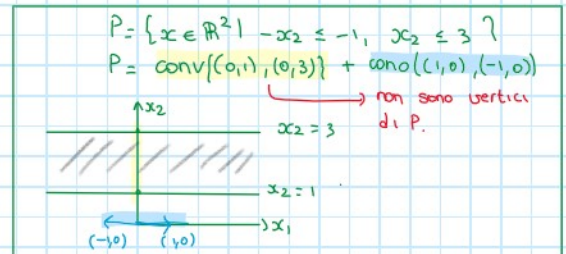 P = {x ∈ ℝ² | -x₂ ≤ -1, x₂ ≤ 3 }
P = conv{(0,1), (0,3)} + cono((1,0), (-1,0))
non sono vertici
di P.
x₂
x₂ = 3
x₂ = 1
x₁
(-1,0) (1,0)